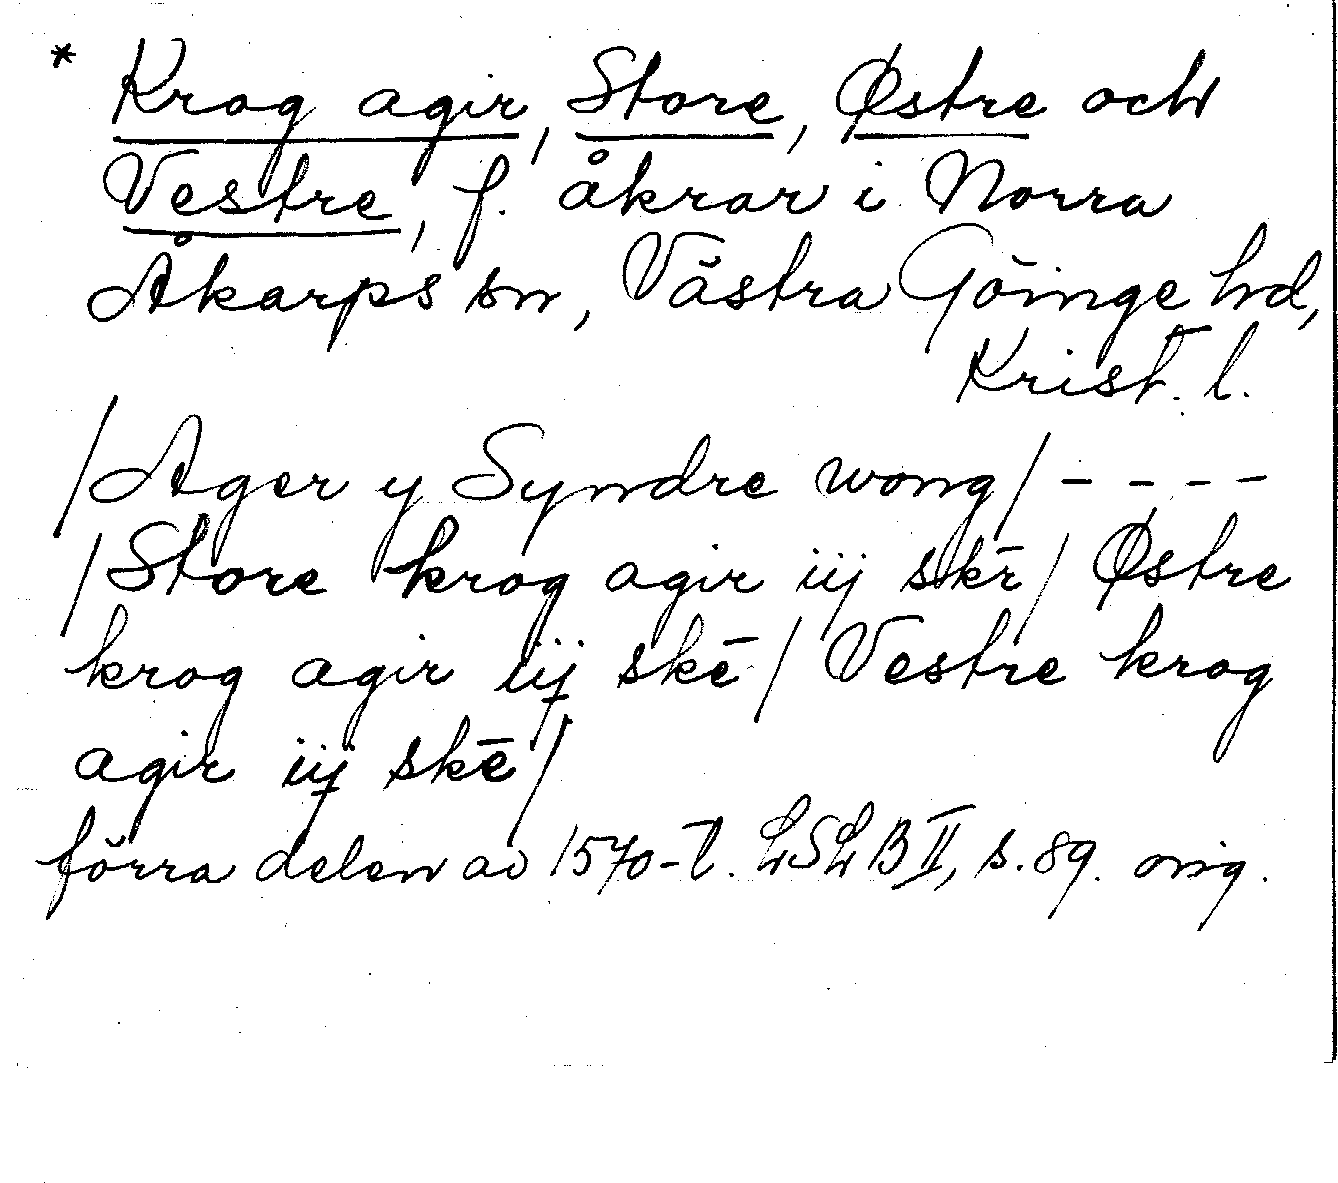 * Krog agir, Store, Østre och
Vestre, f. åkrar i Norra
Åkarps sn, Västra Göinge hd,
Krist. l.
/Ager y Syndre wong/ - - - -
/Store krog agir iij skē/ Østre
krog agir iij skē/ Vestre krog
agir iij skē/
förra delen av 1570-t. LSLB II, s. 89. orig.